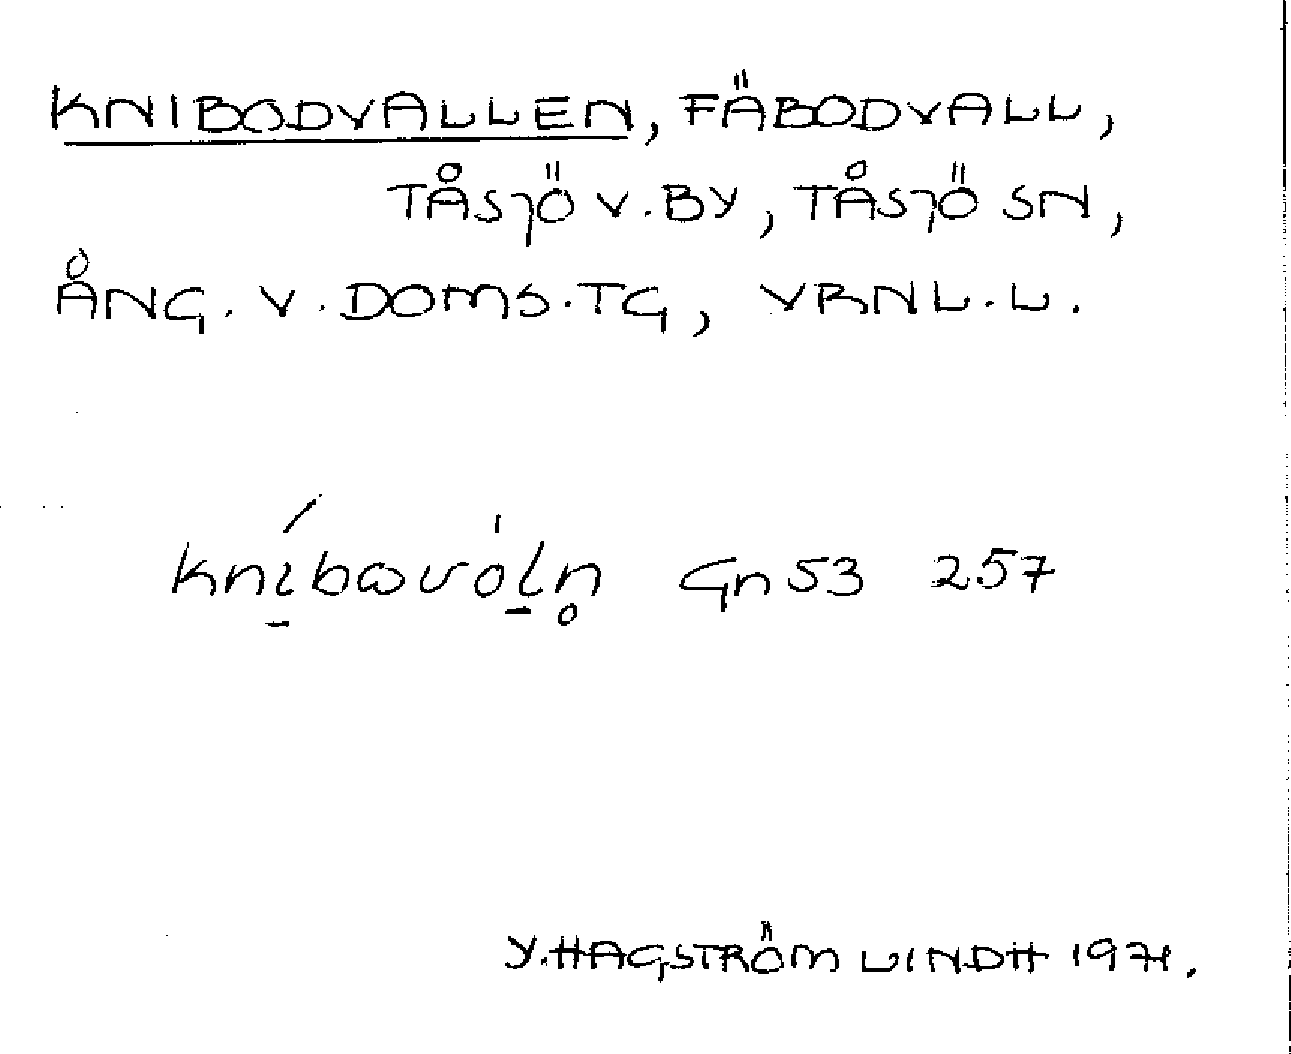 KNIBODVALLEN, FÄBODVALL,
TÅSJÖ V. BY, TÅSJÖ SN,
ÅNG. V. DOMS. TG, VRNL. L.
kni̱bωvȯḻn̥ Gn 53 257
Y. HAGSTRÖM LINDH 1971.